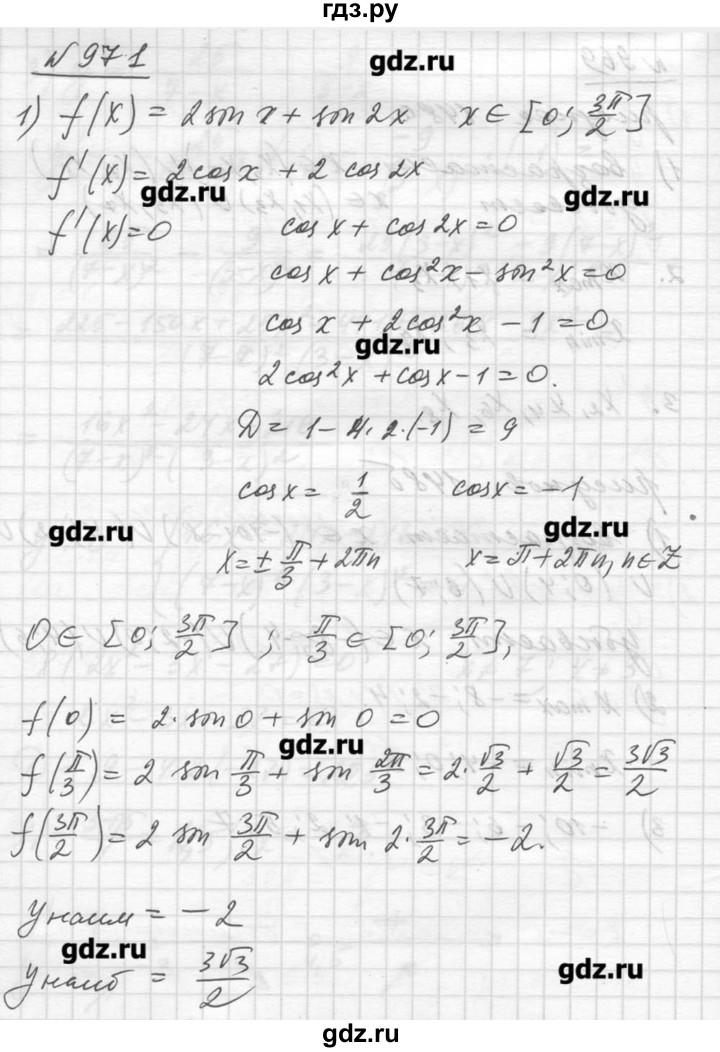 гдз.ру
№971
gdz.ru
1) f(x) = 2 sin x + sin 2x   x ∈ [0; 3π/2]
f'(x) = 2cos x + 2 cos 2x
gdz.ru gdz.ru
f'(x)=0   cos x + cos 2x = 0
cos x + cos²x − sin²x = 0
cos x + 2cos²x − 1 = 0
gdz.ru
2cos²x + cos x − 1 = 0.
D = 1 − 4·2·(−1) = 9
cos x = 1/2   cos x = −1
gdz.ru gdz.ru
x = ± π/3 + 2πn   x = π + 2πn, n ∈ Z
0 ∈ [0; 3π/2] ; π/3 ∈ [0; 3π/2],
f(0) = 2·sin 0 + sin 0 = 0
gdz.ru
f(π/3) = 2 sin π/3 + sin 2π/3 = 2·√3/2 + √3/2 = 3√3/2
f(3π/2) = 2 sin 3π/2 + sin 2·3π/2 = −2.
y наим = −2
gdz.ru
y наиб = 3√3/2
gdz.ru
gdz.ru